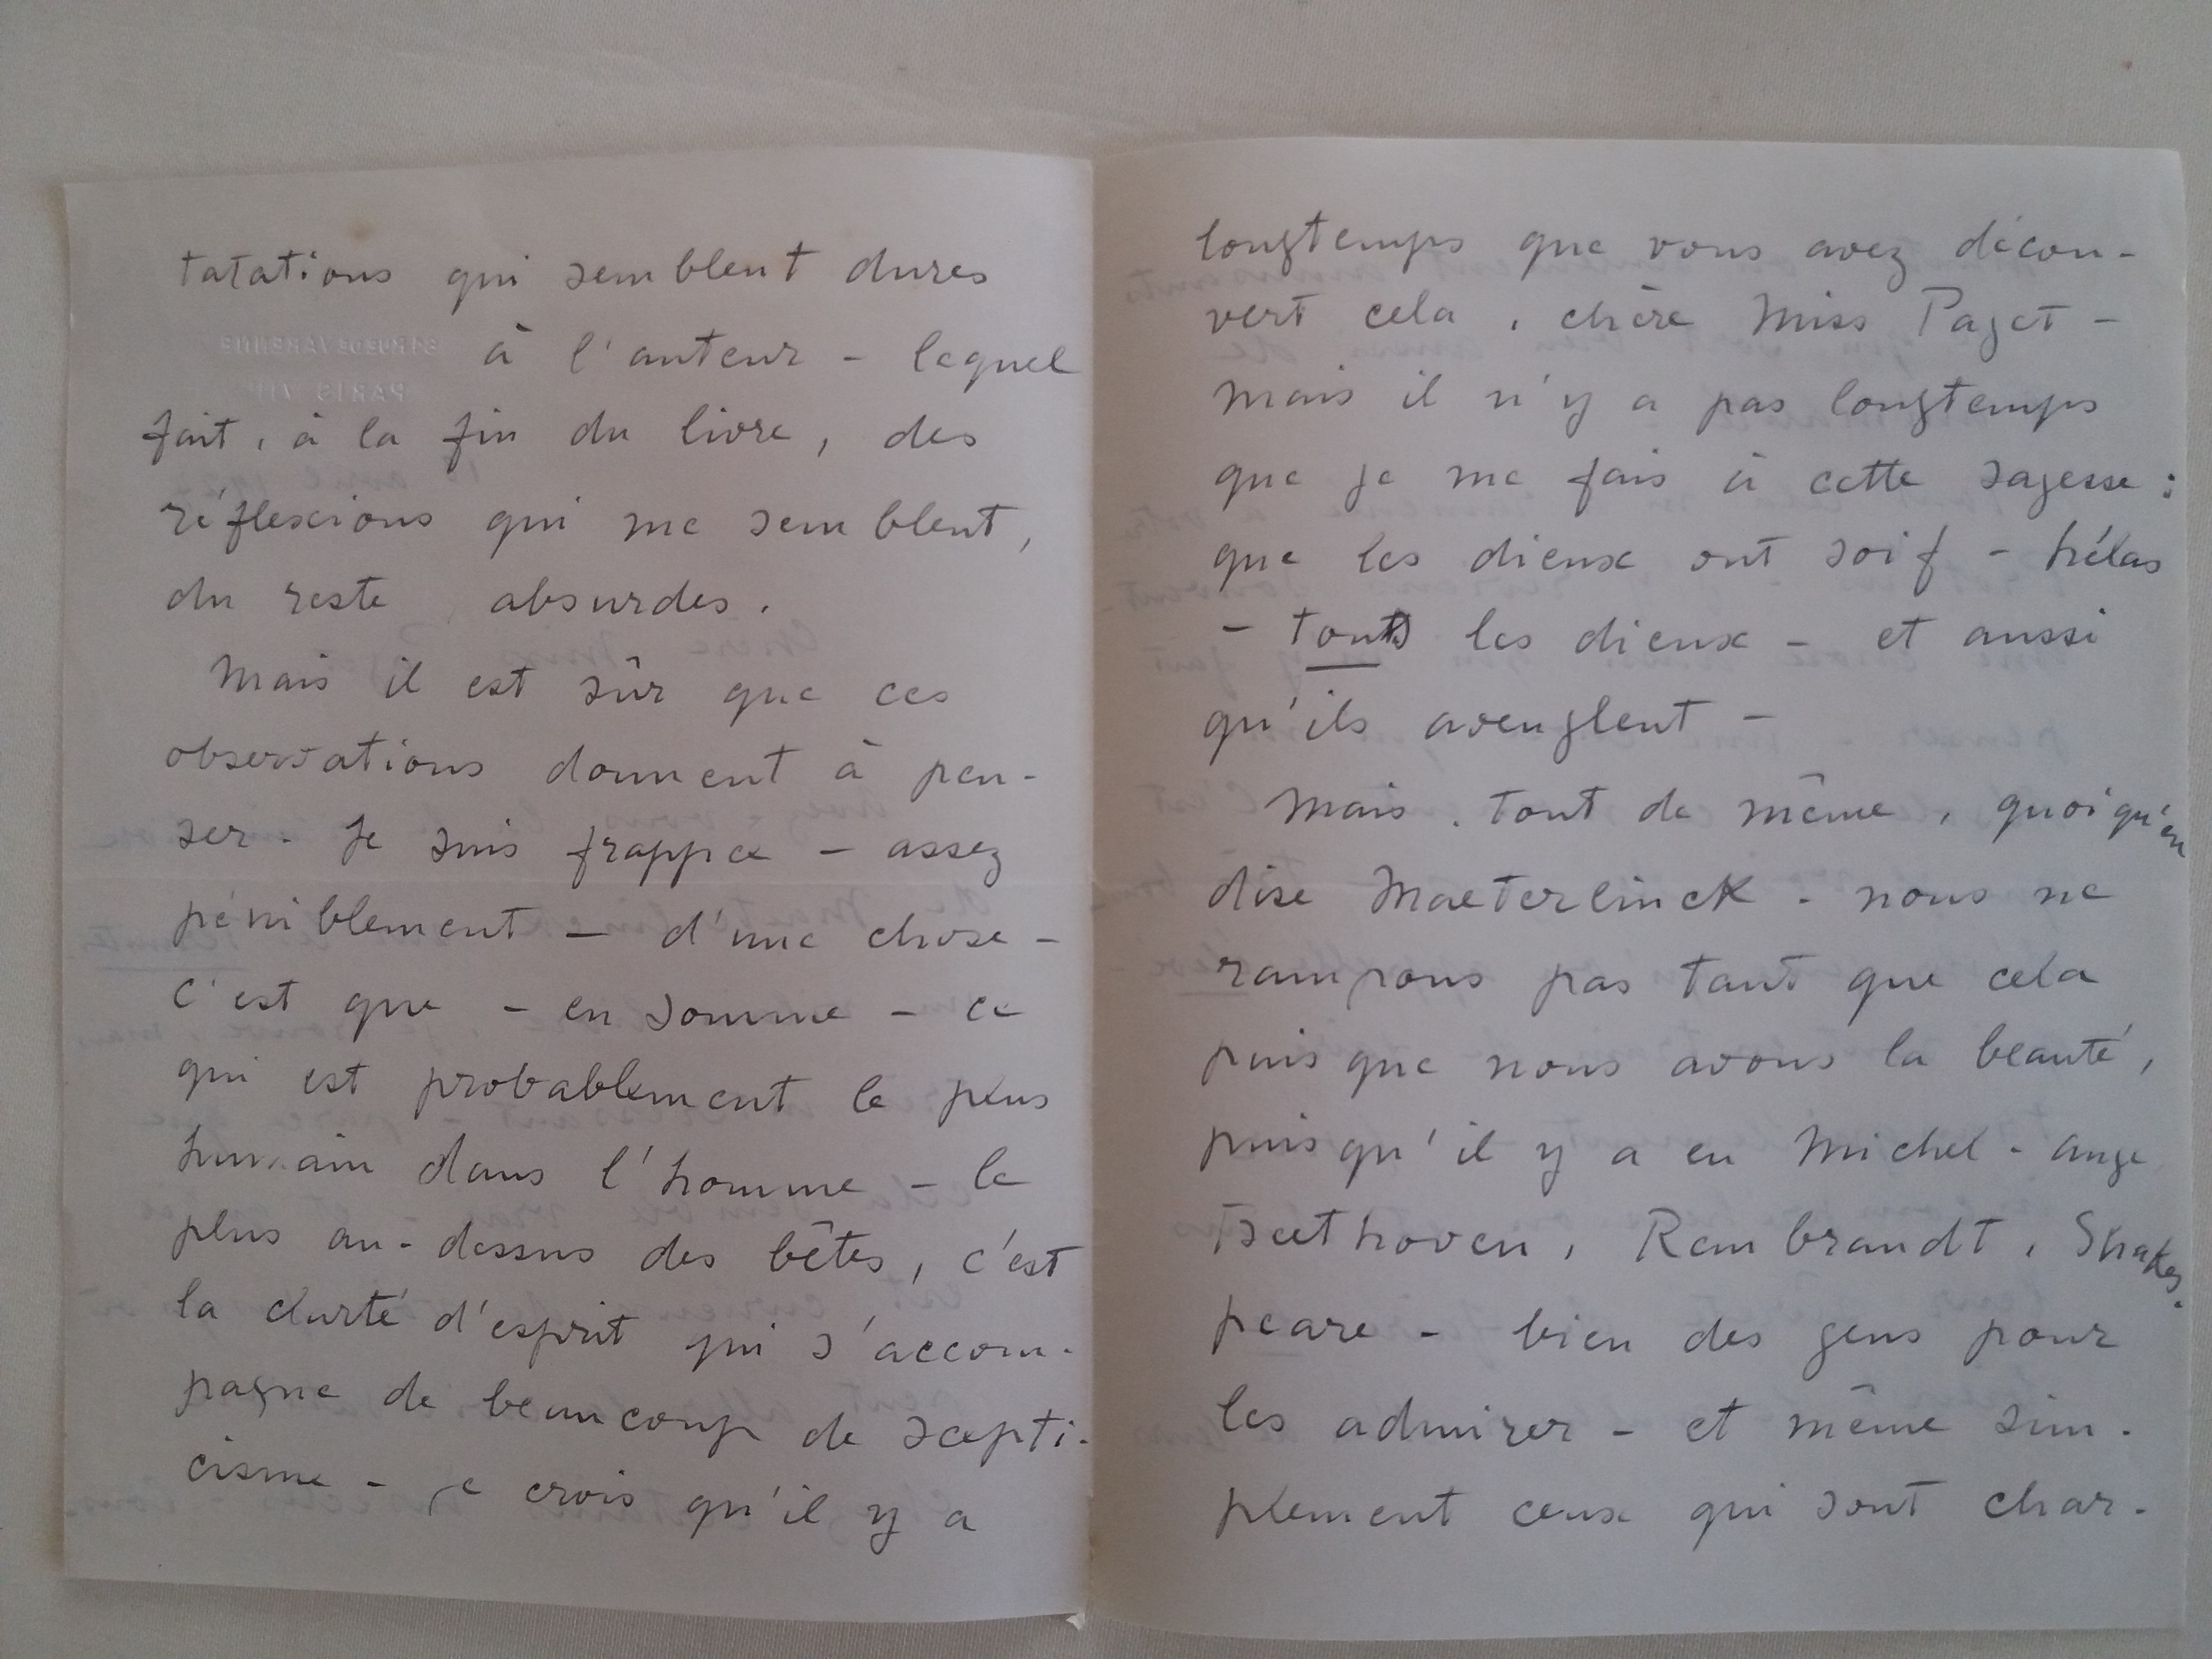 tatations qui semblent dures
à l'auteur - lequel
fait, à la fin du livre, des
réflexions qui me semblent,
du reste, absurdes.
Mais il est sûr que ces
observations donnent à pen-
ser. Je suis frappée - assez
péniblement - d'une chose -
C'est que - en somme - ce
qui est probablement le plus
humain dans l'homme - le
plus au-dessus des bêtes, c'est
la clarté d'esprit qui s'accom-
pagne de beaucoup de scepti-
cisme - je crois qu'il y a
longtemps que vous avez décou-
vert cela, chère Miss Paget -
mais il n'y a pas longtemps
que je me fais à cette sagesse :
que les dieux ont soif - hélas
- tous les dieux - et aussi
qu'ils aveuglent -
Mais, tout de même, quoiqu'en
dise Maeterlinck - nous ne
rampons pas tant que cela
puisque nous avons la beauté,
puisqu'il y a eu Michel-Ange
Beethoven, Rembrandt, Shakes-
peare - bien des gens pour
les admirer - et même sim-
plement ceux qui sont char-